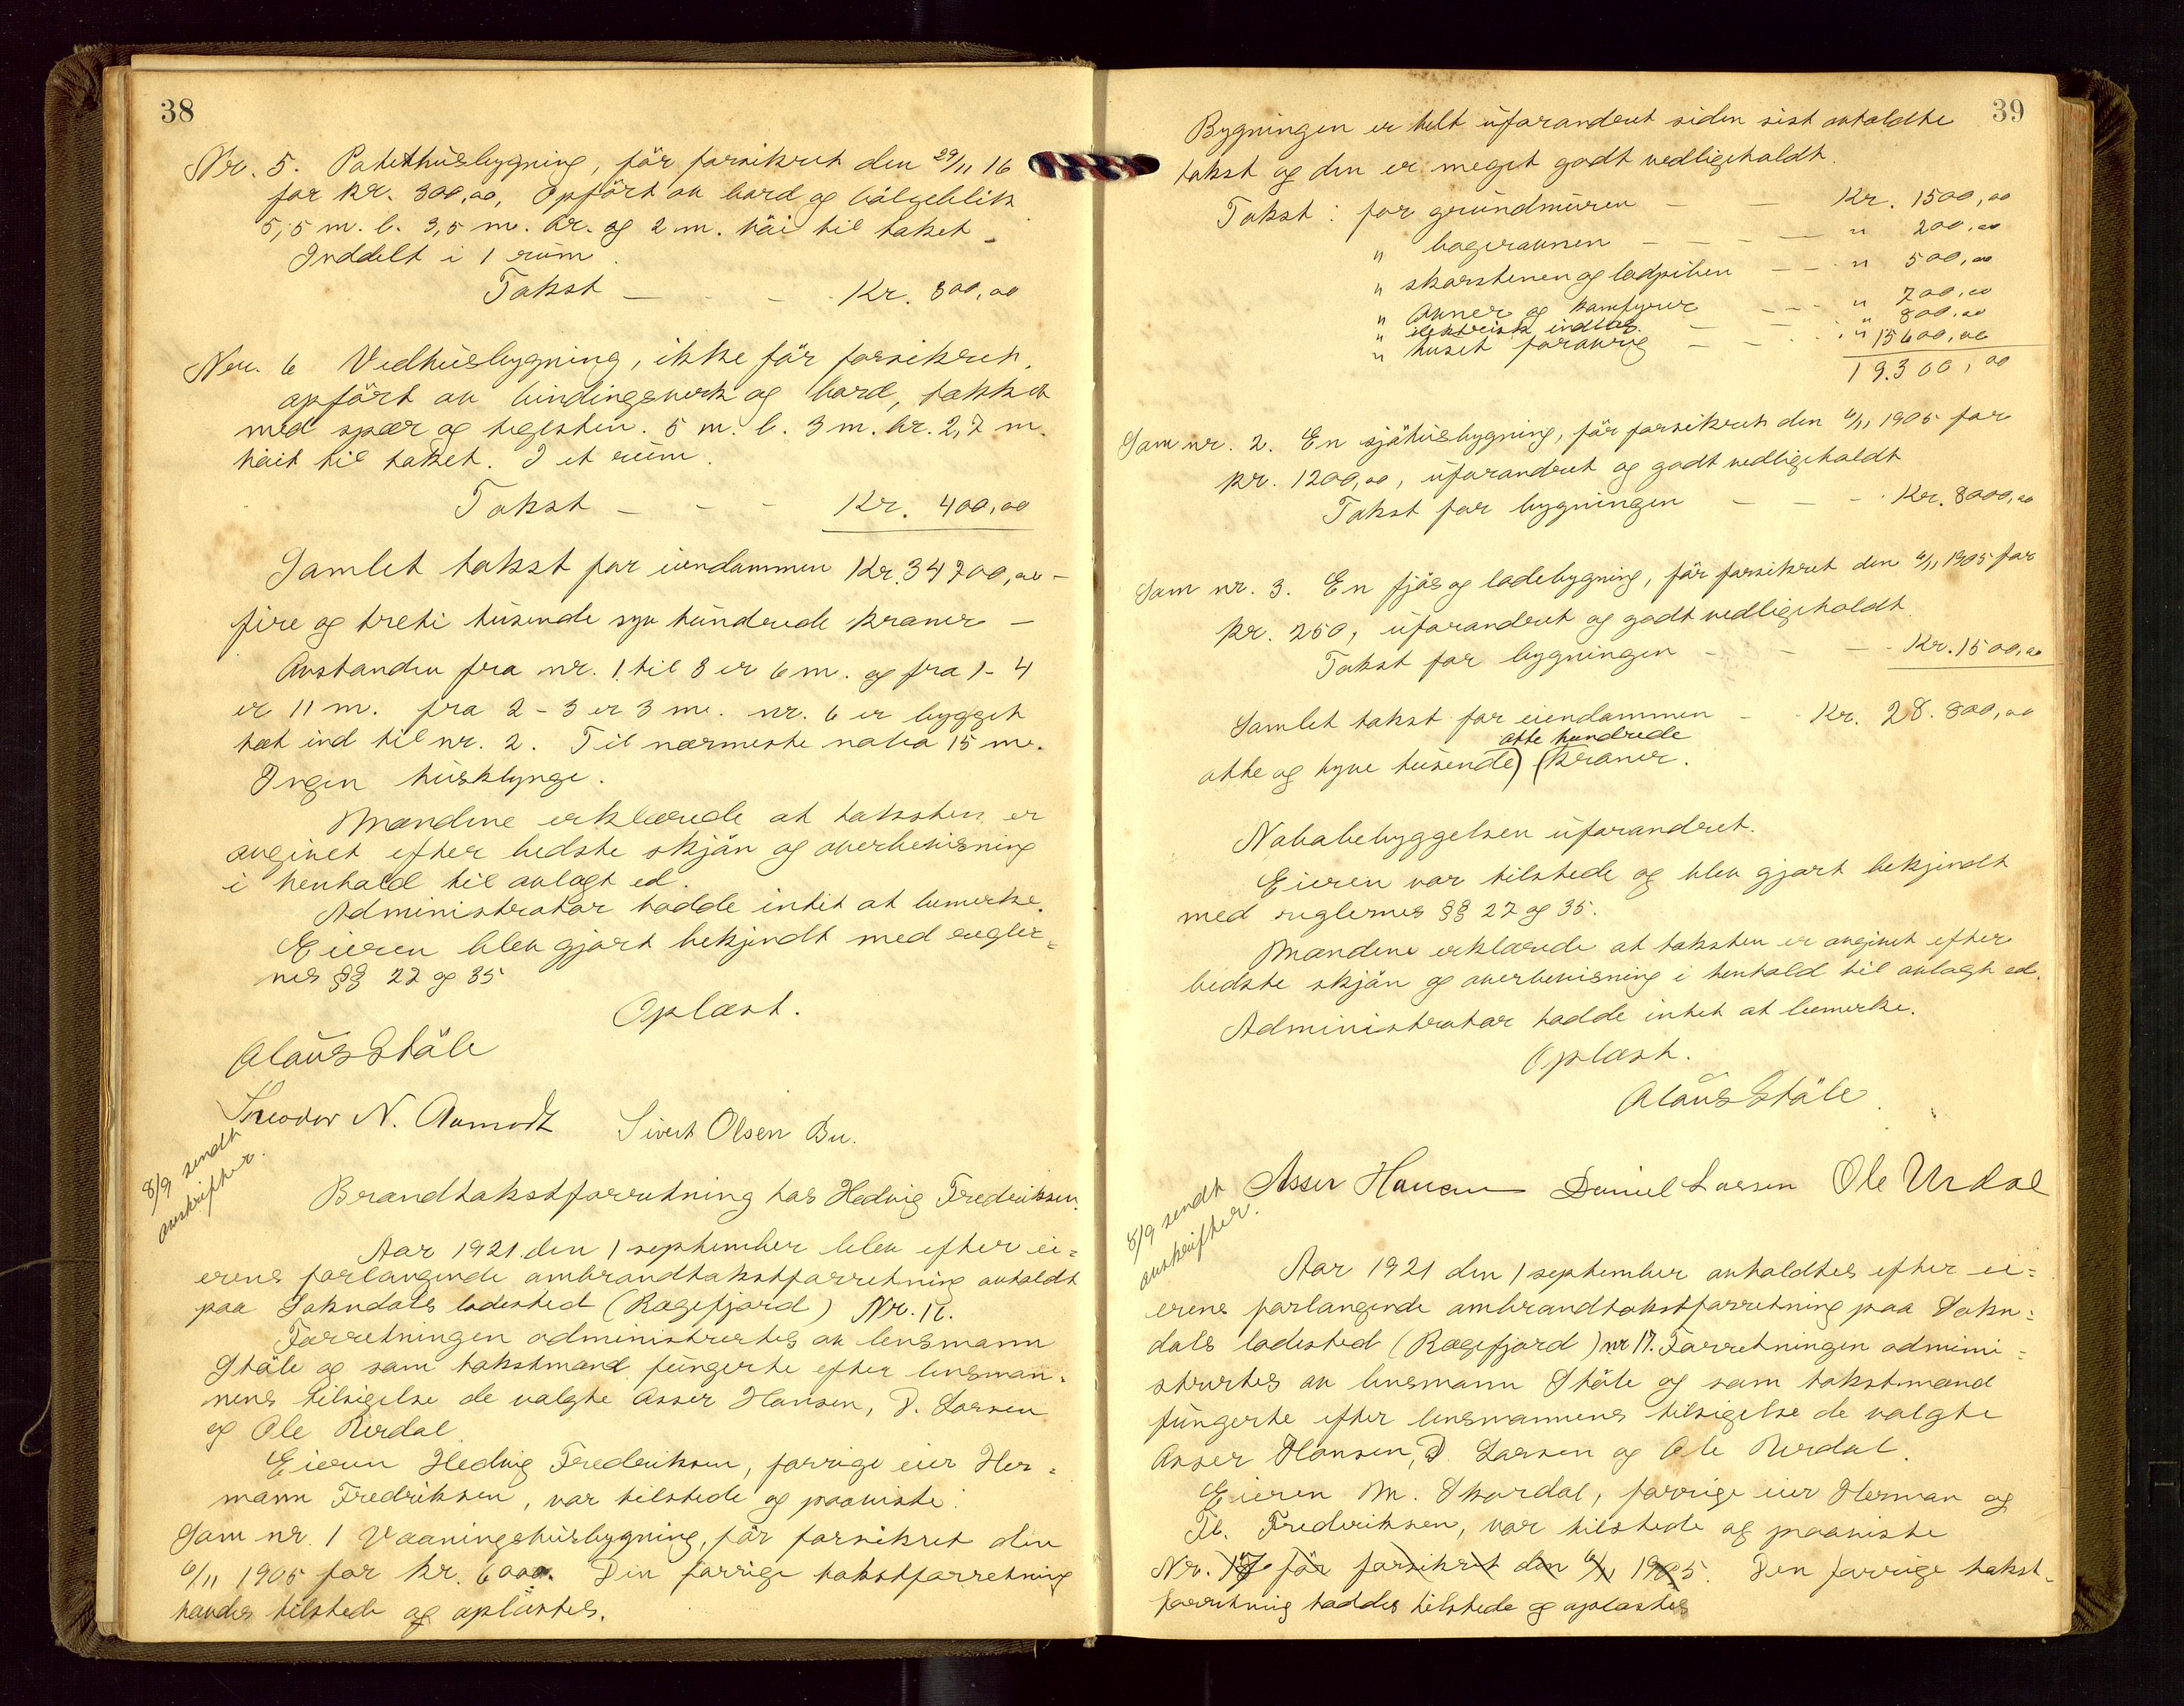 38
Nr. 5. Potethusbygning, før forsikret den 29/11 16
for kr. 300,00, Opført av bord og bølgeblik
5,5 m. l. 3,5 m. br. og 2 m. høi til taket.
Inddelt i 1 rum.
Takst — - - Kr. 800,00
Nr. 6 Vedhusbygning, ikke før forsikret,
opført av bindingsverk og bord, takket
med spær og teglsten. 5 m. l. 3 m. br. 2,7 m.
høit til taket. I et rum.
Takst — - - Kr. 400,00
Samlet takst for eiendommen Kr. 34700,00 -
fire og treti tusende syv hundrede kroner —
Avstanden fra nr. 1 til 3 er 6 m. og fra 1-4
er 11 m. fra 2-3 er 3 m. nr. 6 er bygget
tæt ind til nr. 2. Til nærmeste nabo 15 m.
Ingen husklynge.
Mændene erklærede at taksten er
avgivet efter bedste skjøn og overbevisning
i henhold til avlagt ed.
Administrator hadde intet at bemerke.
Eieren blev gjort bekjendt med regler=
nes §§ 27 og 35
Oplæst.
Olaus Ståle
Theodor N. Aamodt Sivert Olsen Bu.
8/9 sendt
avskrifter.
Brandtakstforretning hos Hedvig Fredriksen.
Aar 1921 den 1 september blev efter ei=
erens forlangende ombrandtakstforretning avholdt
paa Sokndals ladested (Rægefjord) Nr. 16.
Forretningen administrertes av lensmann
Ståle og som takstmænd fungerte efter lensman-
nens tilsigelse de valgte Asser Hansen, D. Larsen
og Ole Urdal.
Eieren Hedvig Fredriksen, forrige eier Her-
mann Fredriksen, var tilstede og paaviste:
Som nr. 1 Vaaningshusbygning, før forsikret den
6/11 1905 for kr. 6000. Den forrige takstforretning
havdes tilstede og oplæstes.
39
Bygningen er helt uforandret siden sist avholdte
takst og den er meget godt vedligeholdt.
Takst: for grundmuren — — Kr. 1500,00
" bagerovnen — — — " 200,00
" skorstenen og ladpiben — — " 500,00
" Ovner og komfyrer — — " 700,00
" elektrisk indlæg. — — " 800,00
" huset forøvrig — — " 15600,00
19.300,00
Som nr. 2. En sjøhusbygning, før forsikret den 6/11 1905 for
kr. 1200,00, uforandret og godt vedligeholdt
Takst for bygningen — — - Kr. 8000,00
Som nr. 3. En fjøs og ladebygning, før forsikret den 6/11 1905 for
kr. 250, uforandret og godt vedligeholdt.
Takst for bygningen - — - Kr. 1500,00
Samlet takst for eiendommen - - Kr. 28.800,00
otte hundrede
otte og tyve tusende) (kroner.
Nabobebyggelsen uforandret.
Eieren var tilstede og blev gjort bekjendt
med reglernes §§ 27 og 35.
Mændene erklærede at taksten er avgivet efter
bedste skjøn og overbevisning i henhold til avlagt ed.
Administrator hadde intet at bemerke.
Oplæst.
Olaus Ståle.
Asser Hansen Daniel Larsen Ole Urdal
8/9 sendt
avskrifter.
Aar 1921 den 1 september avholdtes efter ei=
erens forlangende ombrandtakstforretning paa Sokn=
dals ladested (Rægefjord) nr 17. Forretningen admini=
strertes av lensmann Ståle og som takstmænd
fungerte efter lensmannens tilsigelse de valgte
Asser Hansen, D. Larsen og Ole Urdal.
Eieren M. Skordal, forrige eier Herman og
Fredriksen, var tilstede og paaviste
Nr. 17 før forsikret den 6/11 1905. Den forrige takst-
forretning haddes tilstede og oplæstes